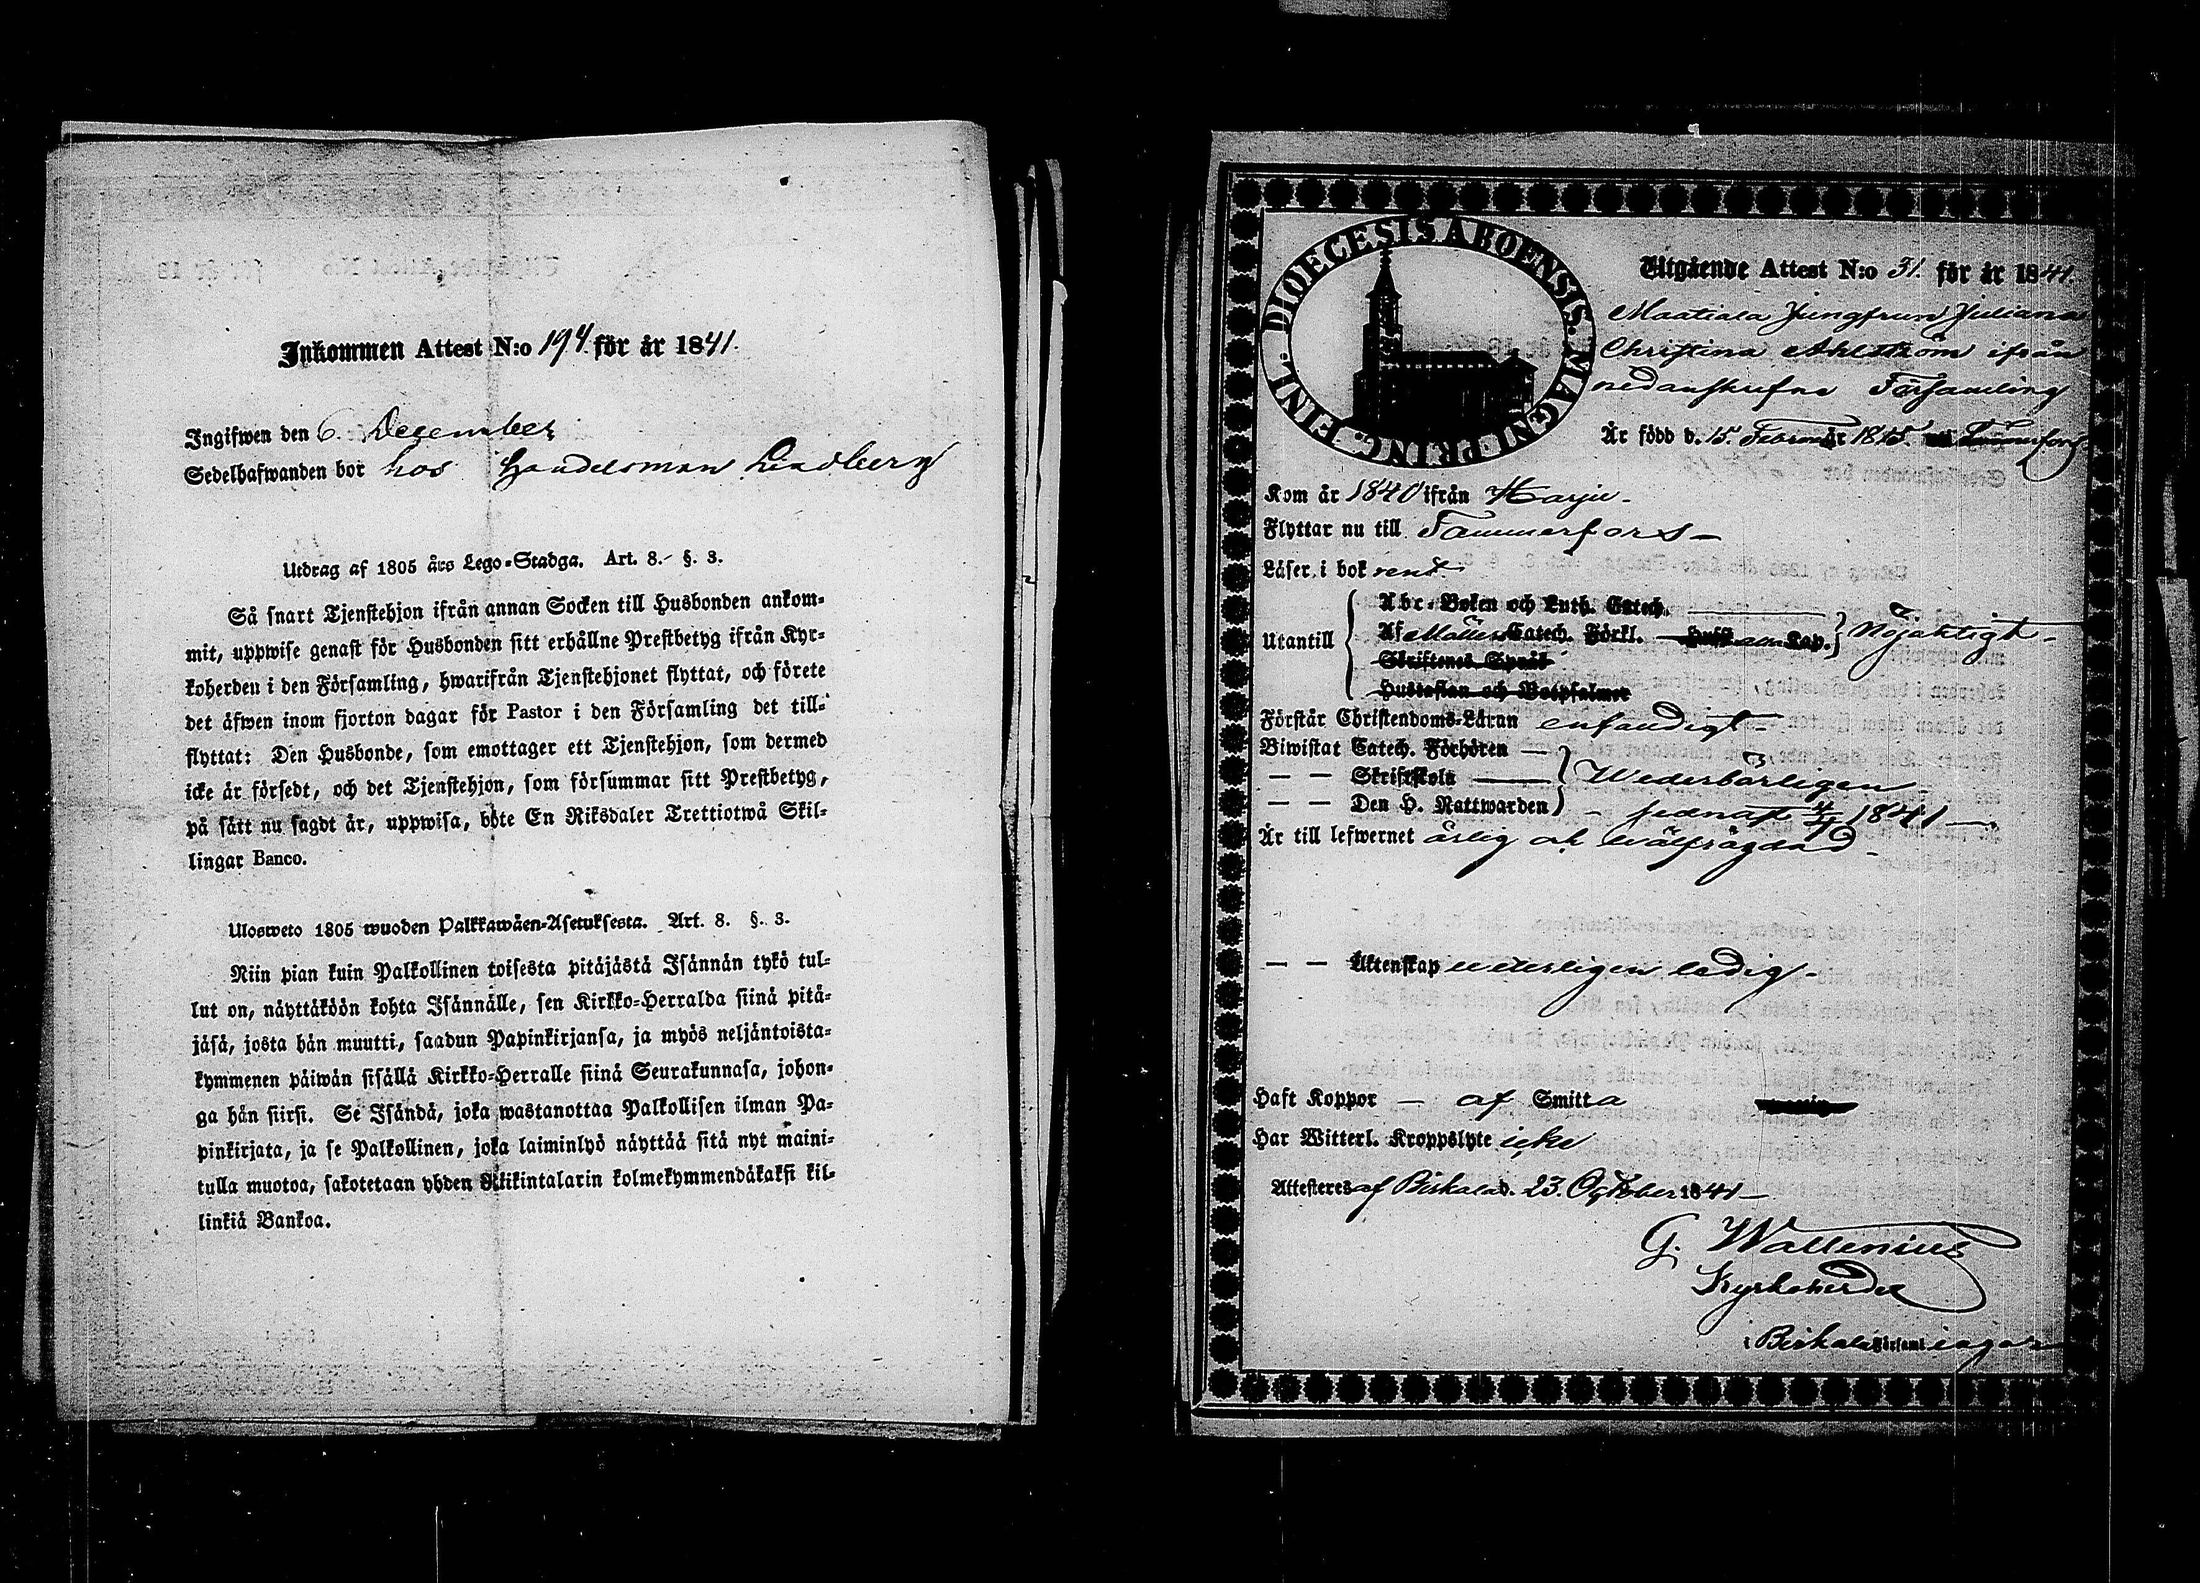 Inkommen Attest N:o 194. för år 1841.
Ingifwen den 6. December
Sedelhafwanden bor hos Handelsman Lindberg
Utdrag af 1805 års Lego-Stadga. Art. 8. §. 3.
Så snart Tjenstehjon ifrån annan Socken till Husbonden ankom-
mit, uppwise genast för Husbonden sitt erhållne Prestbetyg ifrån Kyr-
koherden i den Församling, hwarifrån Tjenstehjonet flyttat, och förete
det äfwen inom fjorton dagar för Pastor i den Församling det till-
flyttat: Den Husbonde, som emottager ett Tjenstehjon, som dermed
icke är försedt, och det Tjenstehjon, som försummar sitt Prestbetyg,
på sätt nu sagdt är, uppwisa, böte En Riksdaler Trettiotwå Skil-
lingar Banco.
Ulosweto 1805 wuoden Palkkawäen-Asetuksesta. Art. 8. §. 3.
Niin pian kuin Palkollinen toisesta pitäjästä Isännän tykö tul-
lut on, näyttäköön kohta Isännälle, sen Kirkko-Herralda siinä pitä-
jäsä, josta hän muutti, saadun Papinkirjansa, ja myös neljäntoista-
kymmenen päiwän sisällä Kirkko-Herralle siinä Seurakunnasa, johon-
ga hän siirsi. Se Isändä, joka wastanottaa Palkollisen ilman Pa-
pinkirjata, ja se Palkollinen, joka laiminlyö näyttää sitä nyt maini-
tulla muotoa, sakotetaan yhden Riikintalarin kolmekymmendäkaksi kil-
linkiä Bankoa.
DIOECESIS ABOENSIS. MAGNI PRINC. FINL.
Utgående Attest N:o 31. för år 1841.
Maatiala Jungfrun Juliana
Christina Ahlström ifrån
nedanskrefne Församling
Är född d. 15. Februari 1815. Tammerfors
Kom år 1840 ifrån Harju -
Flyttar nu till Tammerfors -
Läser i bok rent
Utantill
Abc-Boken och Luth. Catech.
Af Möllers Catech. Förkl. Cap. Nöjaktigt -
Skriftenes Språk
Hustaflan och Botpsalmer
Förstår Christendoms-Läran enfaldigt -
Biwistat Catech. Förhören —
— — Skriftskola — Wederbörligen -
— — Den H. Nattwarden - sednast 4/4 1841 —
Är till lefwernet ärlig och wälfrägdad -
— — Äktenskap wetterligen ledig -
Haft Koppor — af Smitta
Har Witterl. Kroppslyte icke
Attesteres af Birkala d. 23. October 1841 —
G. Wallenius
Kyrkoherde
i Birkala Församlingar